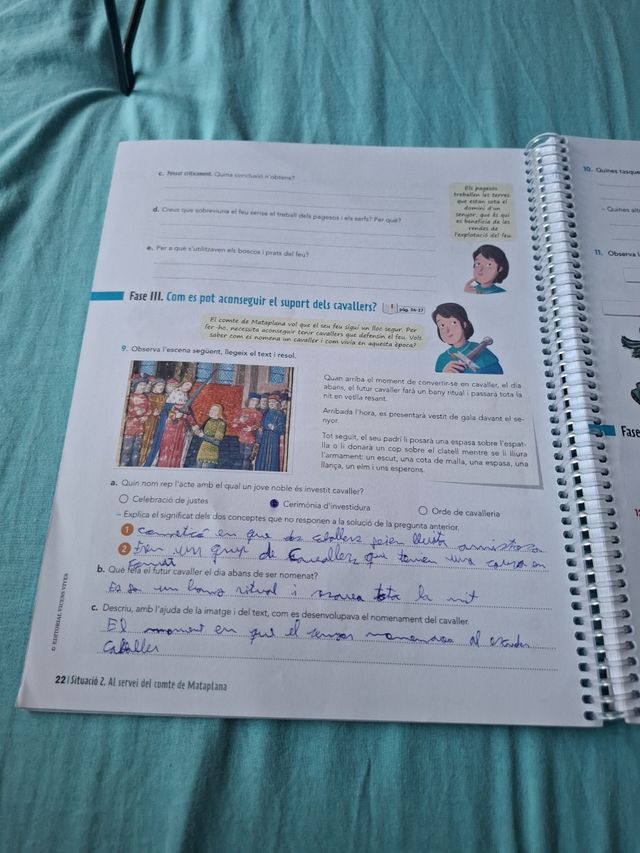 c. Pensar críticament. Quina conclusió n'obtens?
Els pagesos
treballen les terres
que estan sota el
domini d'un
senyor, que és qui
es beneficia de les
rendes de
l'explotació del feu.
d. Creus que sobreviuria el feu sense el treball dels pagesos i els serfs? Per què?
e. Per a què s'utilitzaven els boscos i prats del feu?
Fase III. Com es pot aconseguir el suport dels cavallers? pàg. 36-37
El comte de Mataplana vol que el seu feu sigui un lloc segur. Per
fer-ho, necessita aconseguir tenir cavallers que defensin el feu. Vols
saber com es nomena un cavaller i com vivia en aquesta època?
9. Observa l'escena següent, llegeix el text i resol.
Quan arriba el moment de convertir-se en cavaller, el dia
abans, el futur cavaller farà un bany ritual i passarà tota la
nit en vetlla resant.
Arribada l'hora, es presentarà vestit de gala davant el se-
nyor.
Tot seguit, el seu padrí li posarà una espasa sobre l'espat-
lla o li donarà un cop sobre el clatell mentre se li lliura
l'armament: un escut, una cota de malla, una espasa, una
llança, un elm i uns esperons.
a. Quin nom rep l'acte amb el qual un jove noble és investit cavaller?
Celebració de justes
Cerimònia d'investidura
Orde de cavalleria
– Explica el significat dels dos conceptes que no responen a la solució de la pregunta anterior.
1 en que dos
2 Eren un grup de Cavallers que tenien una
b. Què feia el futur cavaller el dia abans de ser nomenat?
Es un ritual i tota la nit
c. Descriu, amb l'ajuda de la imatge i del text, com es desenvolupava el nomenament del cavaller.
El moment en que el al
© EDITORIAL VICENS VIVES
22 | Situació 2. Al servei del comte de Mataplana
10. Quines tasque
– Quines alt
11. Observa l
Fase